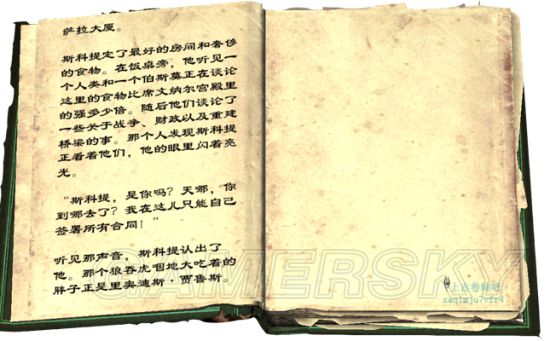 萨拉大厦。
斯科提定了最好的房间和奢侈
的食物。在饭桌旁，他听见一
个人类和一个伯斯莫正在谈论
这里的食物比席文纳尔宫殿里
的强多少倍。随后他们谈论了
一些关于战争、财政以及重建
桥梁的事。那个人发现斯科提
正看着他们，他的眼里闪着亮
光。
“斯科提，是你吗？天哪，你
到哪去了？我在这儿只能自己
签署所有合同！”
听见那声音，斯科提认出了
他。那个狼吞虎咽地大吃着的
胖子正是里奥迪斯·贾鲁斯。
GAMERSKY
上古卷轴吧
zaq1mju7vfr4